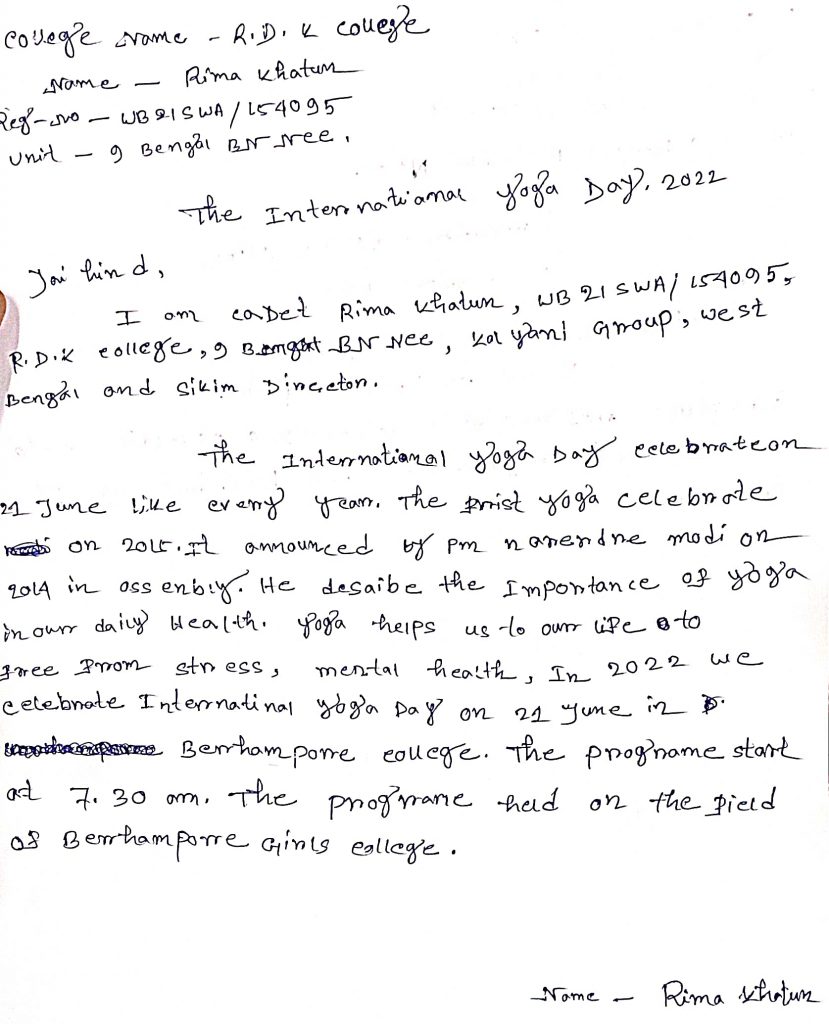 College Name - R.D.K College
Name - Rima Khatun
Reg-No - WB21SWA/154095
Unit - 9 Bengal BN Nee.
The Internatianal Yoga Day. 2022
Jai hind,
I am cadet Rima Khatun, WB21SWA/154095,
R.D.K college, 9 Bengal BN Nee, Kalyani Group, West
Bengal and Sikim Direeton.
The International yoga Day celebrateon
21 June like every year. The frist yoga celebrate
on 2015. It announced by pm narendre modi on
2014 in assenbly. He desaibe the Importance of yoga
in our daily Health. Yoga helps us to our life to
free from stress, mental health, In 2022 we
celebrate Internatinal yoga Day on 21 June in
Berhamporre college. The programe start
at 7.30 am. The programe held on the field
of Berhamporre Girls college.
Name - Rima Khatun